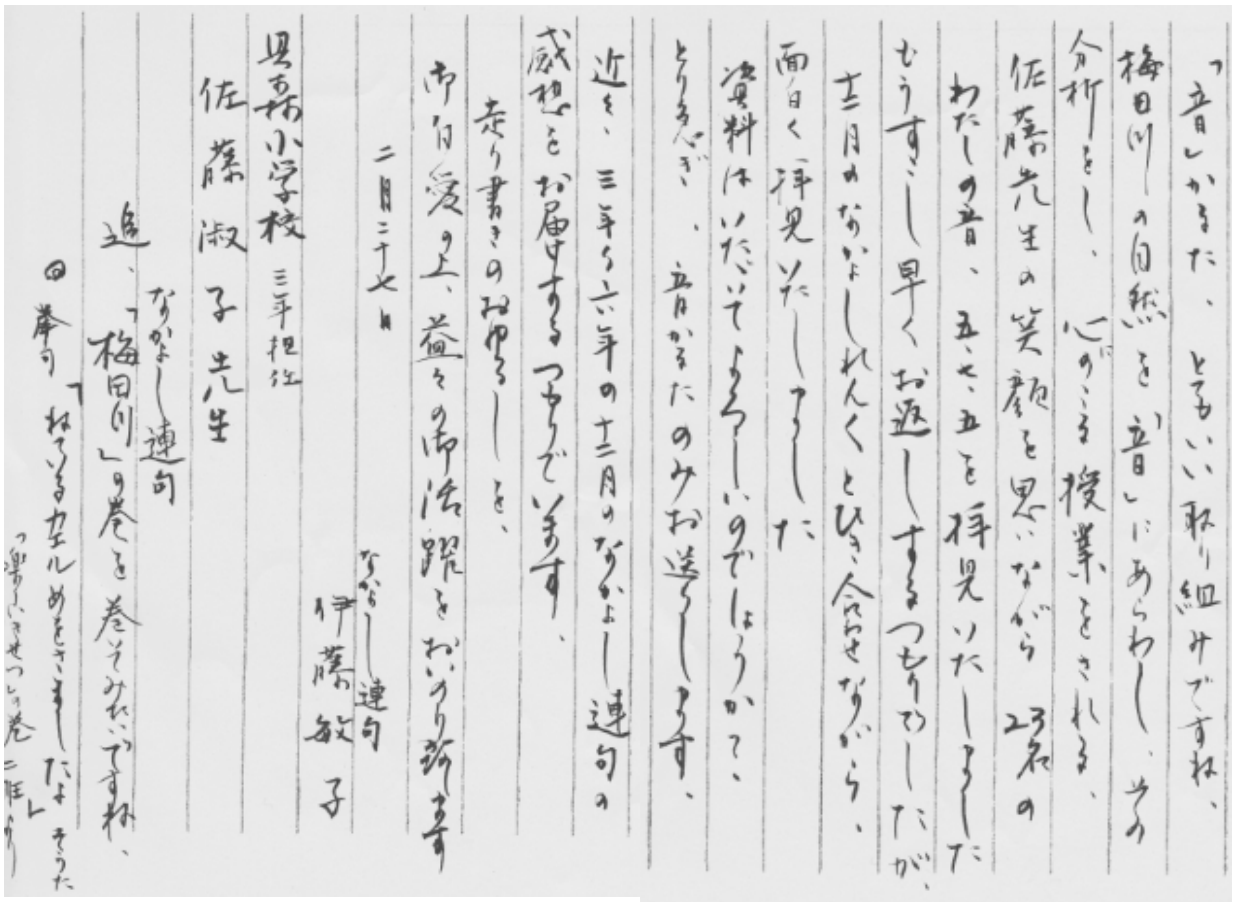 「音」かるた、とてもいい取り組みですね、
梅田川の自然を「音」にあらわし、その
分析をし、心がこる授業をされる、
佐藤先生の笑顔を思いながら 23名の
わたしの音、五、七、五を拝見いたしました
もうすこし早くお返しするつもりでしたが、
十二月のなかよしれんくとひき合わせながら、
面白く拝見いたしました
資料はいただいてよろしいのでしょうかて、
とり急ぎ、音かるたのみお送りします、
近々、三年生六年の十二月のなかよし連句の
感想をお届けするつもりでいます、
走り書きのお申るしを、
御自愛の上、益々の御活躍をおいのり致します
二月二十七日
なかよし連句
伊藤敏子
小学校 三年担任
佐藤淑子先生
なかよし連句
追、「梅田川」の巻を巻いてみたいですね、
挙句「ねているカエルめをさましたよ そうた」